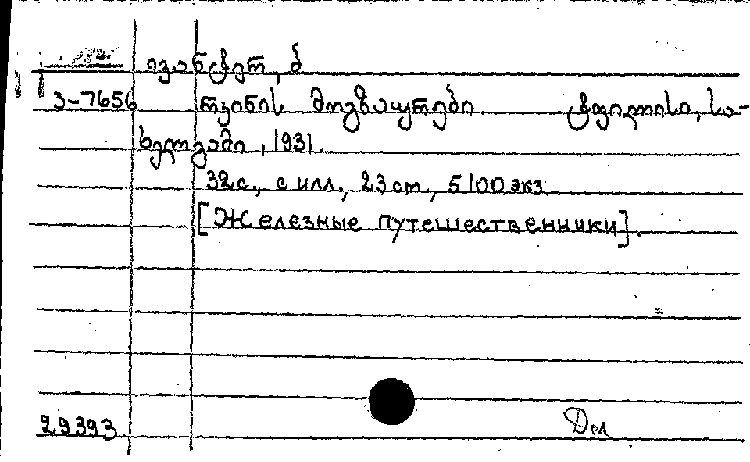 ივანტერ, ბ
3-7656 რკინის მოგზაურები. ტფილისი, სა-
ხელგამი, 1931.
32с., с илл., 23 cm, 5100 экз
[Железные путешественники].
29393
Дел